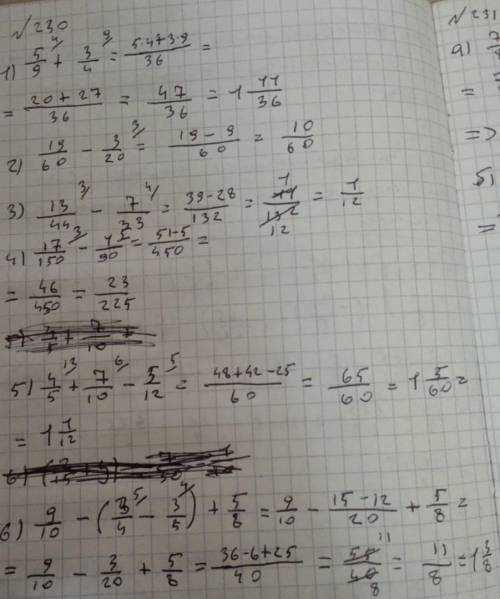 №230
1) 5/9 ⁴⁄ + 3/4 ⁹⁄ = (5·4+3·9)/36 =
= (20+27)/36 = 47/36 = 1 11/36
2) 19/60 - 3/20 ³⁄ = (19-9)/60 = 10/60
3) 13/44 ³⁄ - 7/33 ⁴⁄ = (39-28)/132 = 11/132 = 1/12
4) 17/150 ³⁄ - 1/90 ⁵⁄ = (51-5)/450 =
= 46/450 = 23/225
5) 4/5 ¹²⁄ + 7/10 ⁶⁄ - 5/12 ⁵⁄ = (48+42-25)/60 = 65/60 = 1 5/60 =
= 1 1/12
6) 9/10 - (3/4 ⁵⁄ - 3/5 ⁴⁄) + 5/8 = 9/10 - (15-12)/20 + 5/8 =
= 9/10 - 3/20 + 5/8 = (36-6+25)/40 = 55/40 = 11/8 = 1 3/8
№231
а)
=
=>
=